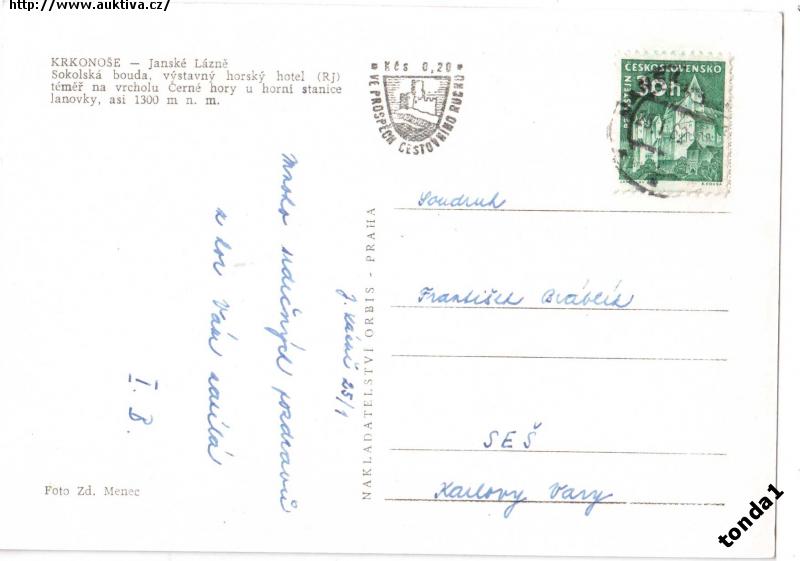 http://www.auktiva.cz/
KRKONOŠE – Janské Lázně
Sokolská bouda, výstavný horský hotel (RJ)
téměř na vrcholu Černé hory u horní stanice
lanovky, asi 1300 m n. m.
Kčs 0,20
VE PROSPĚCH CESTOVNÍHO RUCHU
ČESKOSLOVENSKO
30h
PERNŠTEJN
J. Lázně 25/1
Mnoho srdečných pozdravů
z hor Vám zasílá
I. B.
NAKLADATELSTVÍ ORBIS - PRAHA
Soudruh
František Bráblík
SEŠ
Karlovy Vary
Foto Zd. Menec
tonda1